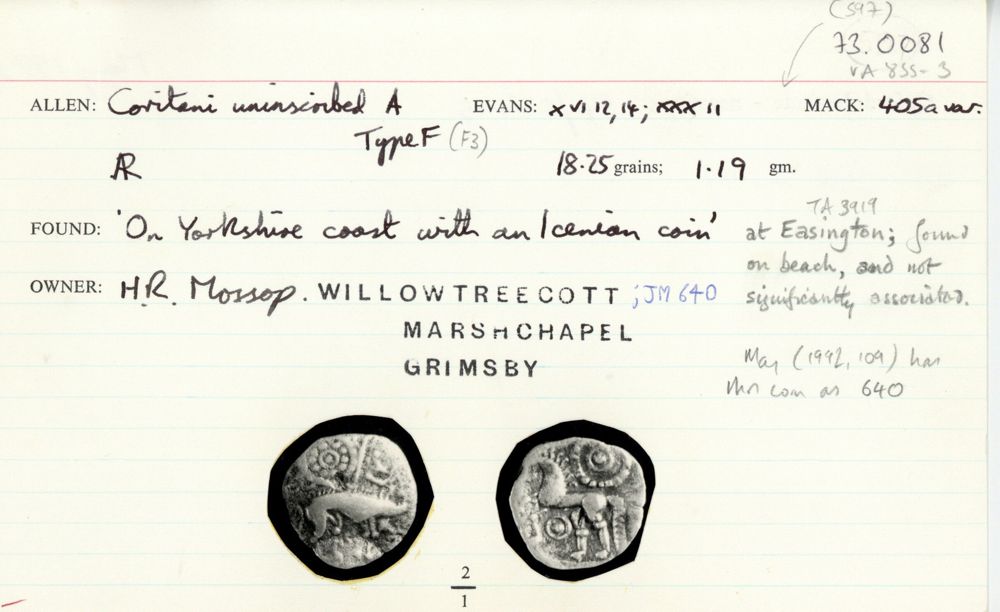 (S97)
73.0081
VA 855-3
ALLEN: Coritani uninscribed A EVANS: XVI 12, 14; XXX 11 MACK: 405a var.
Type F (F3)
AR 18.25 grains; 1.19 gm.
TA 3919
FOUND: 'On Yorkshire coast with an Icenian coin' at Easington; found
on beach, and not
OWNER: H.R. Mossop. WILLOWTREECOTT ; JM 640 significantly associated.
MARSHCHAPEL
GRIMSBY
May (1992, 109) has
this coin as 640
2
1